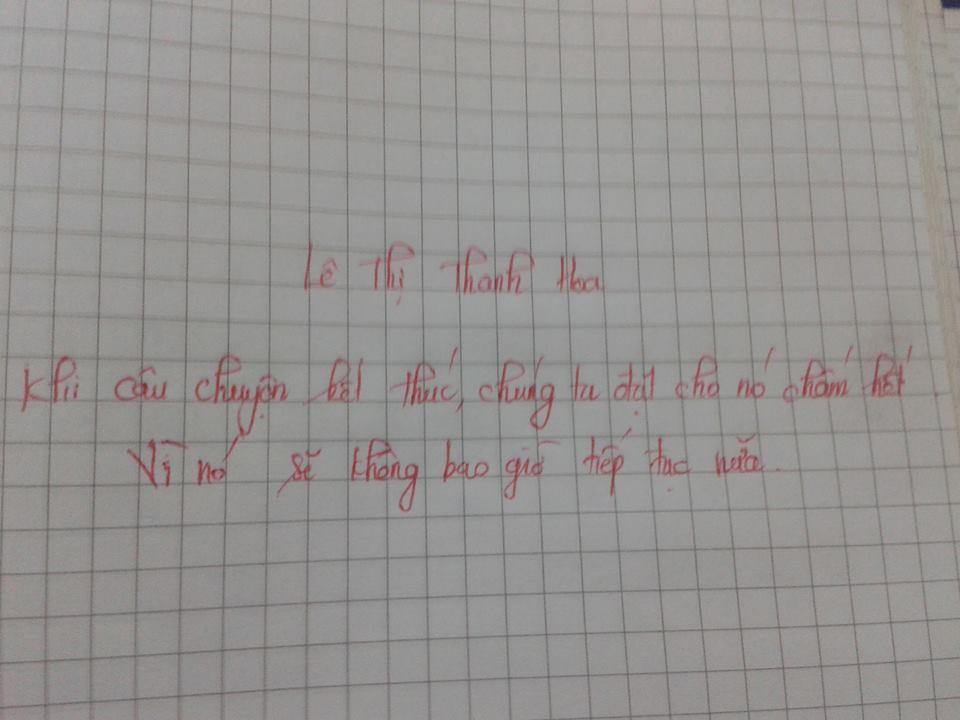 Lê Thị Thanh Hoa
Khi câu chuyện kết thúc, chúng ta đặt cho nó chấm hết
Vì nó sẽ không bao giờ tiếp tục nữa.